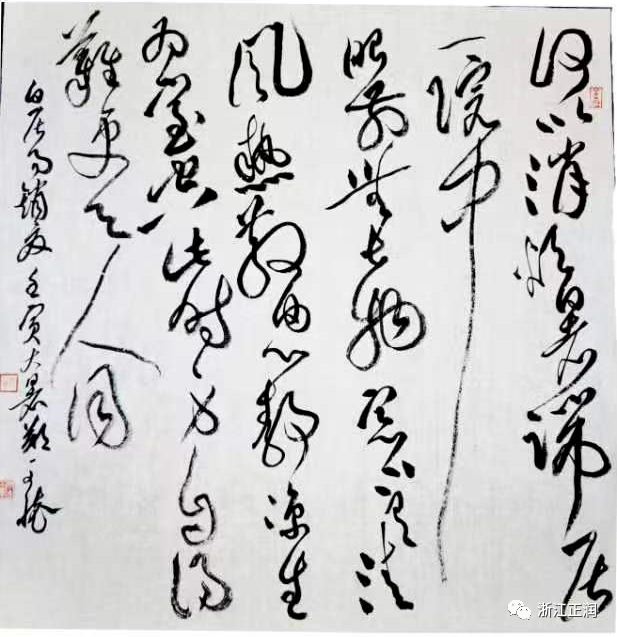 何以消烦暑端居
一院中
眼前無長物窓下有清
風熱散由心静凉生
为室空此时身自得
難更与人同
白居易銷夏壬寅大暑鄭
浙江正润